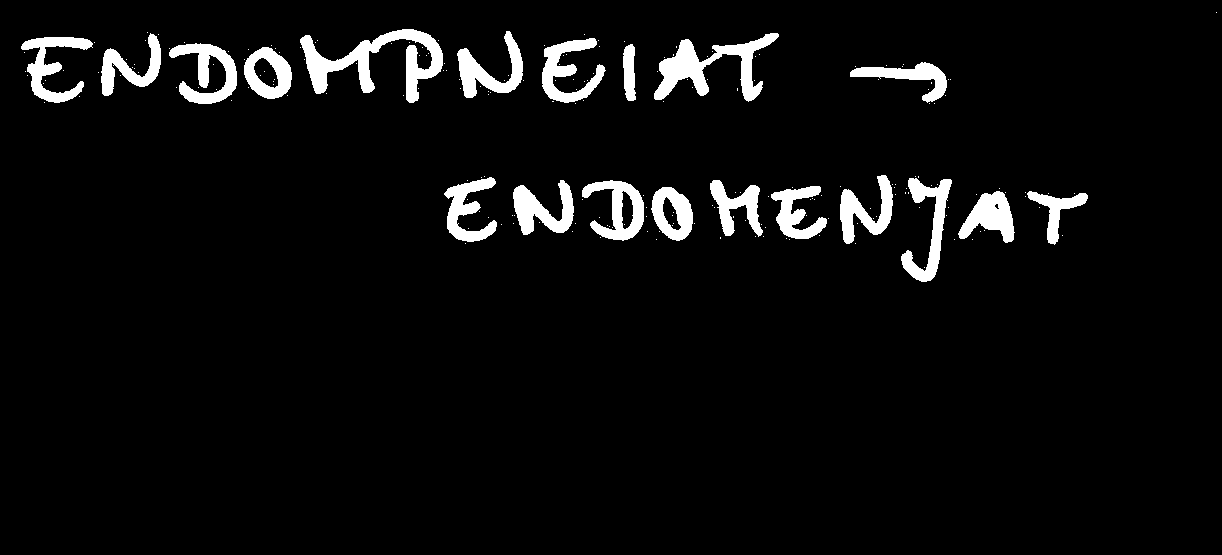 ENDOMPNEIAT →
ENDOMENYAT